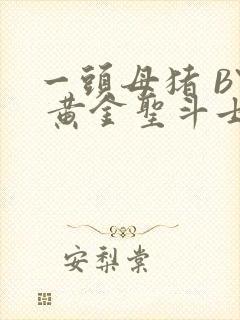 一頭母猪 BY
黄金聖斗士
安梨棠